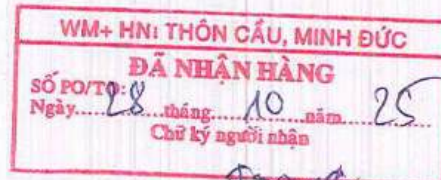 WM+ HN: THÔN CẦU, MINH ĐỨC
ĐÃ NHẬN HÀNG
SỐ PO/TO:
Ngày 28 tháng 10 năm 25
Chữ ký người nhận